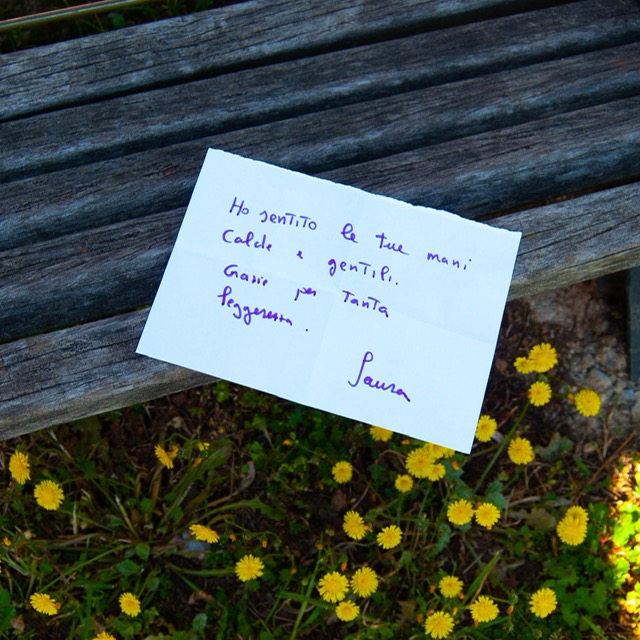 Ho sentito le tue mani
Calde e gentili.
Grazie per tanta
leggerezza.
Laura